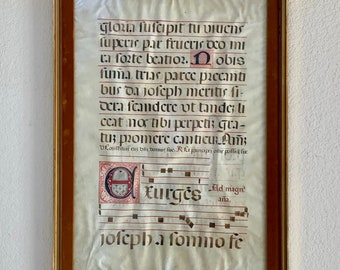 gloria suscipit tu viuens
superis par frueris deo mi
ra sorte beatior. Nobis
suma trias parce precanti
bus da joseph meritis si
dera scandere vt tandē li
ceat nos tibi perpetē gra
tū promere canticū. Amē
V. Constituit eū dnū domus sue. R. Et principē
Exurgēs
Ad magnī.
aña.
joseph a somno fe